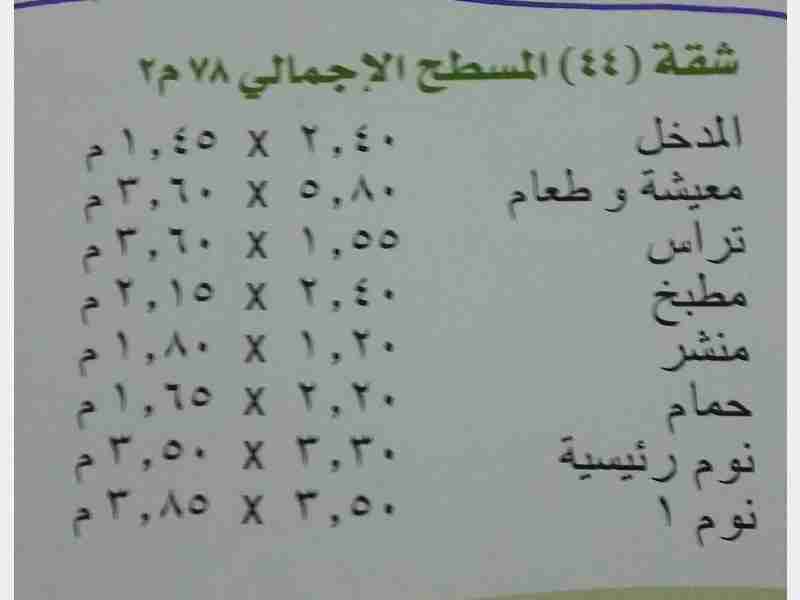 شقة (٤٤) المسطح الإجمالي ٧٨ م٢
المدخل ٢,٤٠ X ١,٤٥ م
معيشة و طعام ٥,٨٠ X ٣,٦٠ م
تراس ١,٥٥ X ٣,٦٠ م
مطبخ ٢,٤٠ X ٢,١٥ م
منشر ١,٢٠ X ١,٨٠ م
حمام ٢,٢٠ X ١,٦٥ م
نوم رئيسية ٣,٣٠ X ٣,٥٠ م
نوم ١ ٣,٥٠ X ٣,٨٥ م